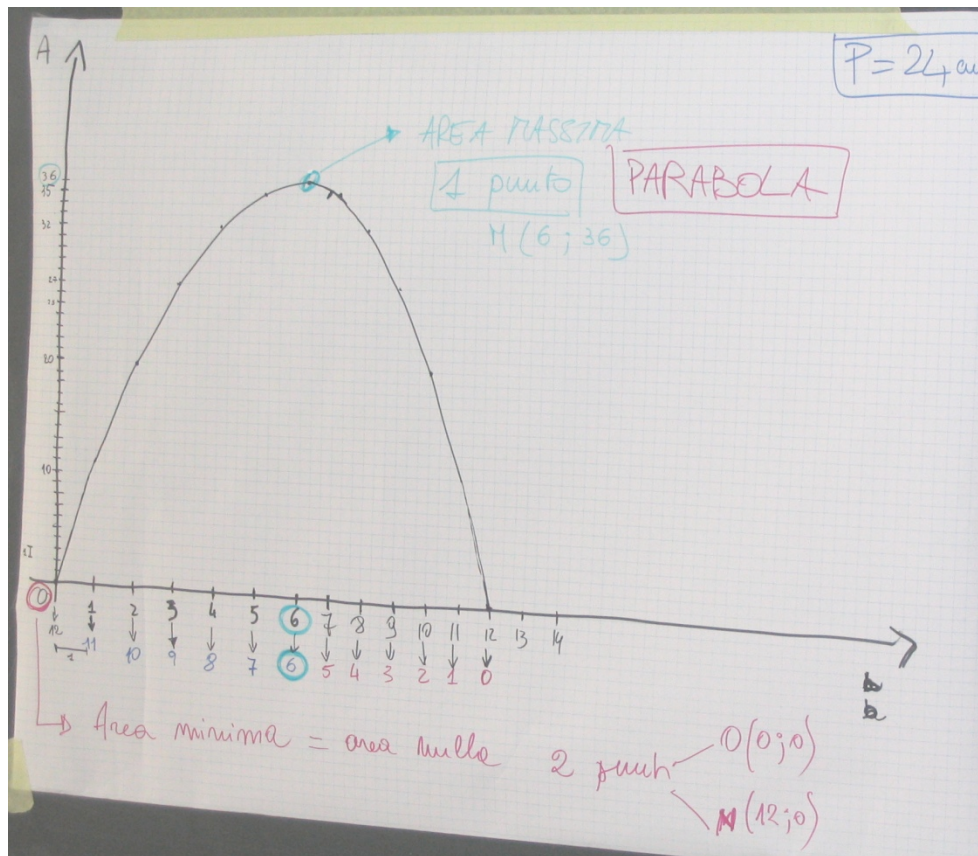 A
P = 24 cm
AREA MASSIMA
1 punto
PARABOLA
M (6 ; 36)
36
35
32
27
20
10
0 1 2 3 4 5 6 7 8 9 10 11 12 13 14
12 11 10 9 8 7 6 5 4 3 2 1 0
1
b
Area minima = area nulla
2 punti
O(0;0)
N(12;0)